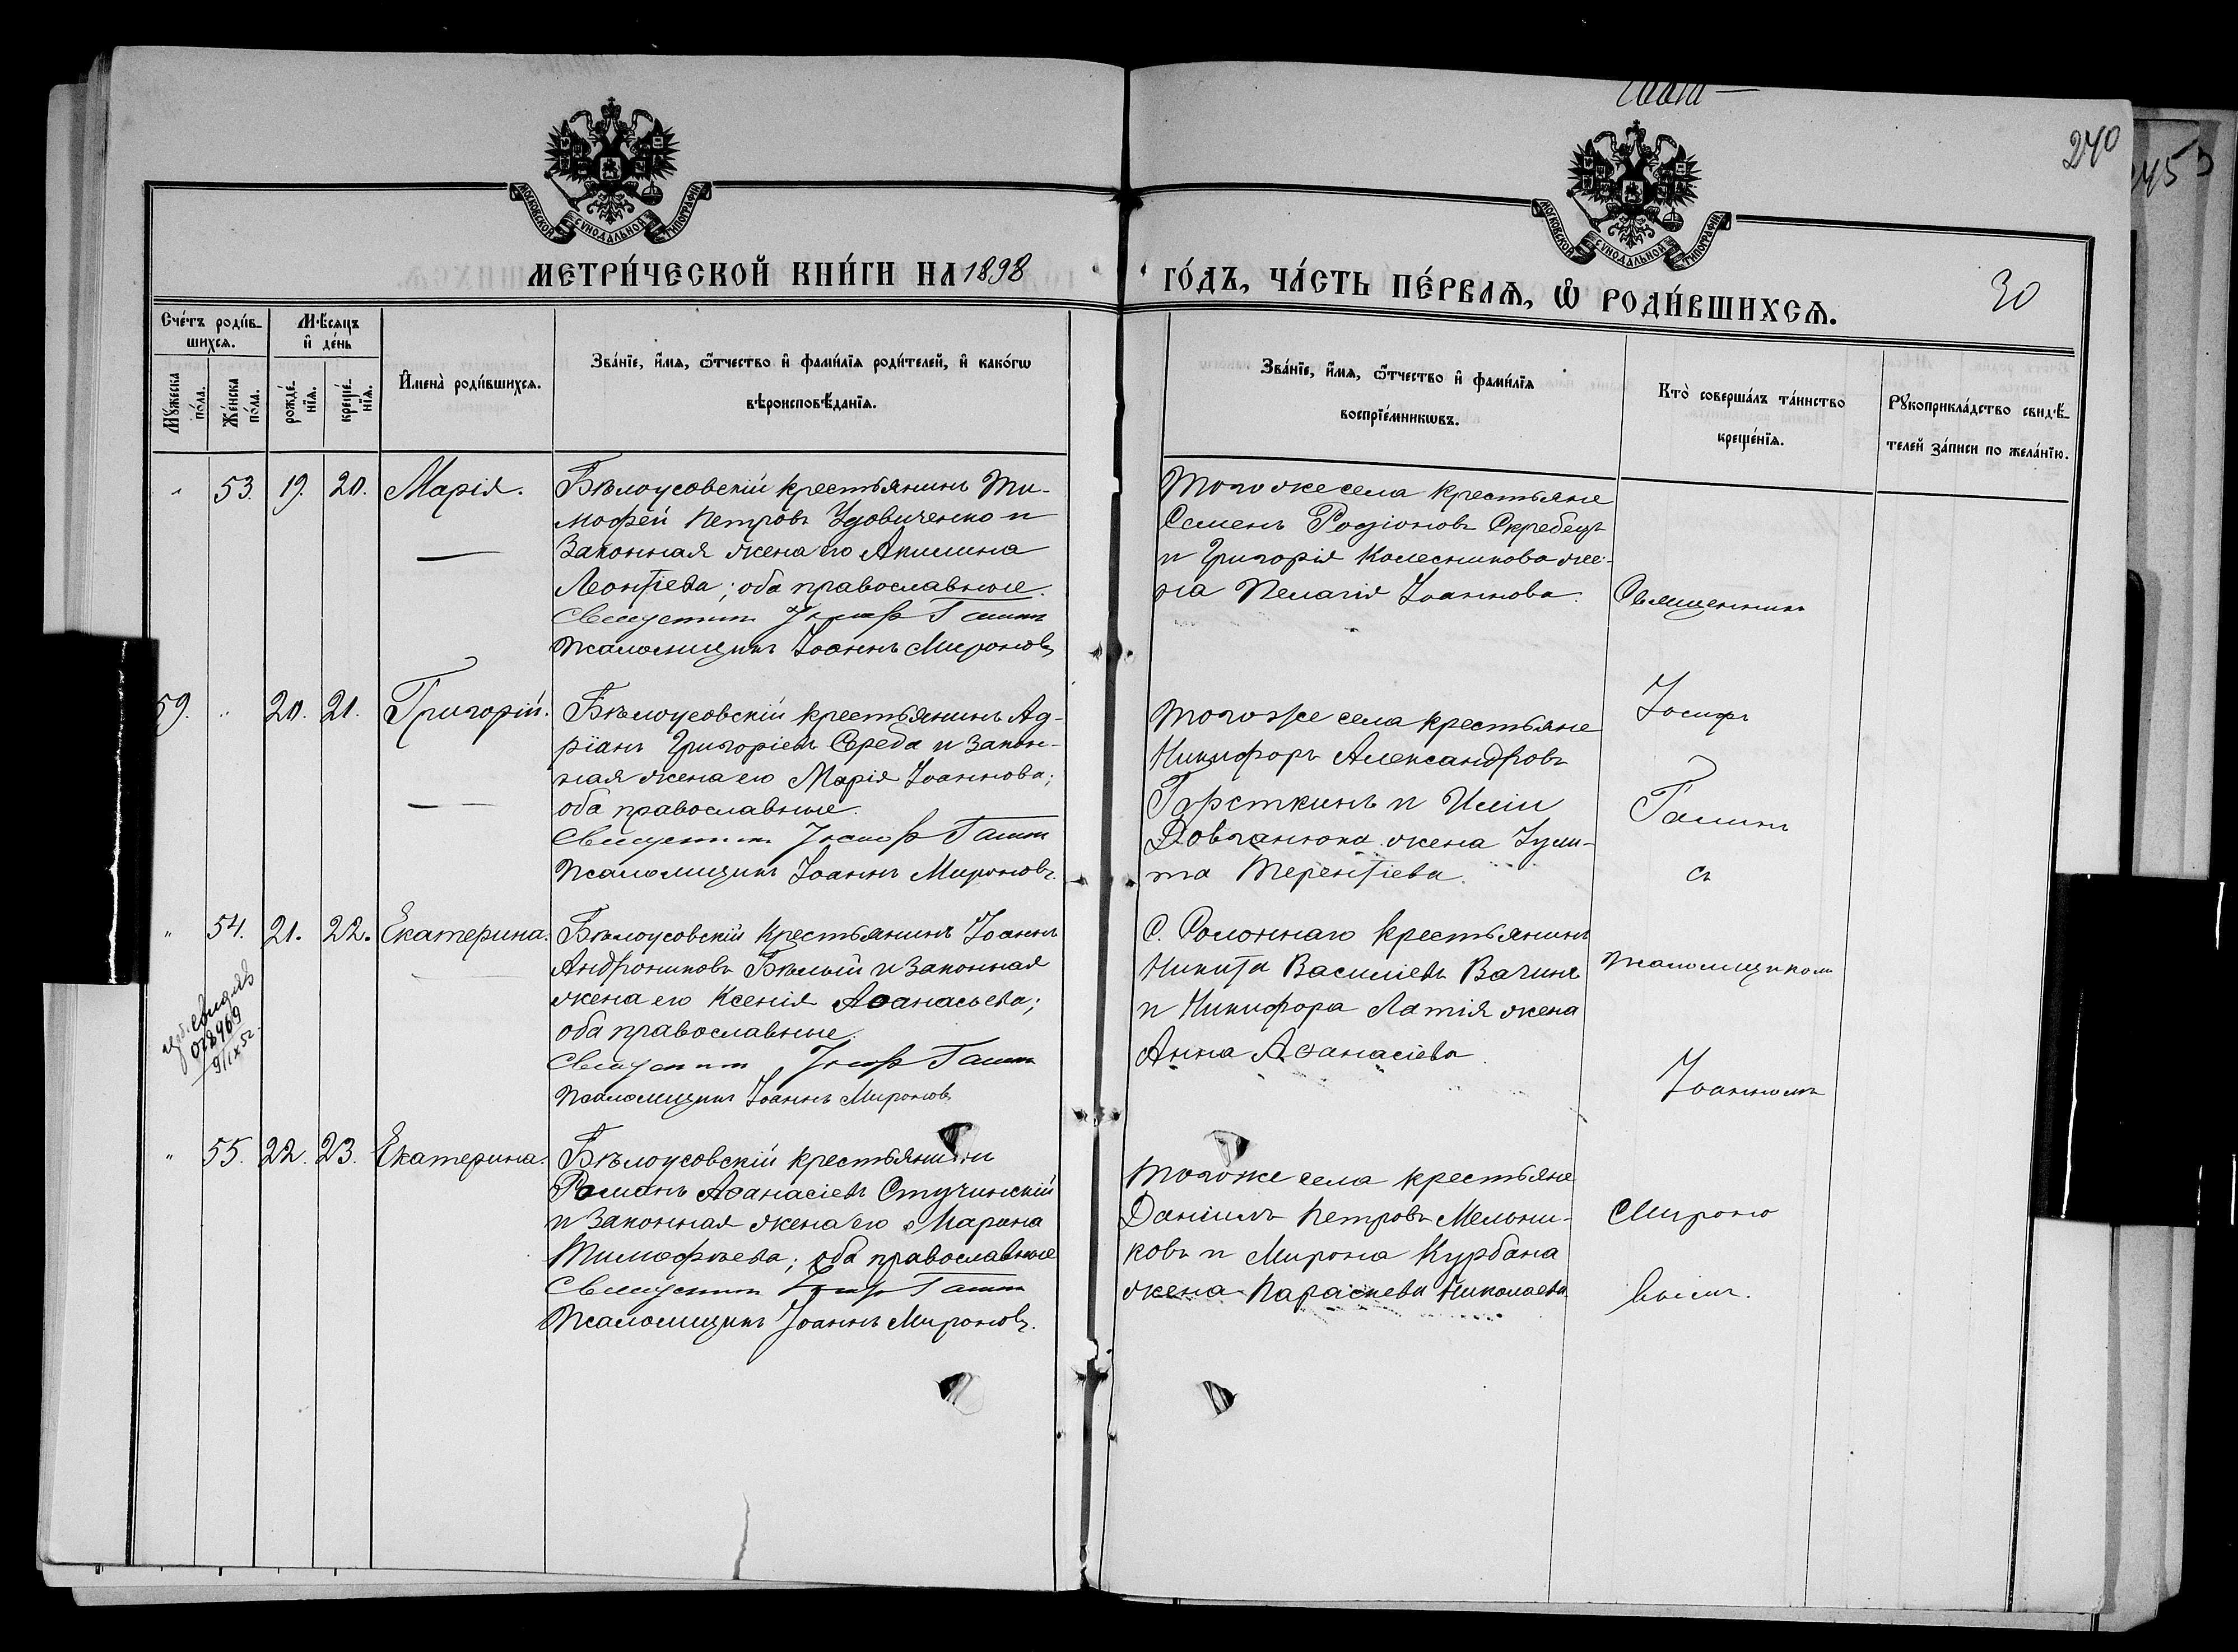 240
МОСКОВСКОЙ СѴНОДАЛЬНОЙ ТИПОГРАФІИ
МОСКОВСКОЙ СѴНОДАЛЬНОЙ ТИПОГРАФІИ
МЕТРИ́ЧЕСКОЙ КНИ́ГИ НА 1898
ГО́ДЪ, ЧА́СТЬ ПЕ́РВАЯ, Ѽ РОДИ́ВШИХСЯ.
30
Сче́тъ роди́в-
шихся.
Мꙋ́жеска по́ла.
Же́нска по́ла.
Мѣ́сяцъ и҆ де́нь
рожде́нїя.
креще́нїя.
И҆мена̀ роди́вшихся.
Зва́нїе, и҆́мя, ѻ҆́тчество и҆ фами́лїя роди́телей, и҆ како́гѡ
вѣроисповѣ́данїя.
Зва́нїе, и҆́мя, ѻ҆́тчество и҆ фами́лїя
воспрїе́мникѡвъ.
Кто̀ соверша́лъ та́инство
креще́нїя.
Рꙋкоприкла́дство свидѣ́-
телей за́писи по жела́нїю.
" 53. 19. 20. Марія.
Бѣлоусовскій крестьянинъ Ти-
мофей Петровъ Удовиченко и
законная жена его Акилина
Леонтіева; оба православные.
Священникъ Іосифъ Гашин
Псаломщикъ Іоаннъ Мироновъ
Того же села крестьяне
Семенъ Родіоновъ Скребецъ
и Григорія Колесникова же-
на Пелагія Іоаннова.
Священникъ
59. " 20. 21. Григорій.
Бѣлоусовскій крестьянинъ Ад-
ріанъ Григоріевъ Середа и закон-
ная жена его Марія Іоаннова;
оба православные.
Священникъ Іосифъ Гашин
Псаломщикъ Іоаннъ Мироновъ.
Того же села крестьяне
Никифоръ Александровъ
Герсткинъ и Иліи
Довганюка жена Іули-
та Терентіева.
Іосифъ
съ
" 54. 21. 22. Екатерина.
Бѣлоусовскій крестьянинъ Іоаннъ
Андрониковъ Бѣлый и законная
жена его Ксенія Аѳанасьева;
оба православные.
Священникъ Іосифъ Гашин
Псаломщикъ Іоаннъ Мироновъ
018969
9/IX 52
С. Солоннаго крестьянинъ
Никита Василіевъ Вагинъ
и Никифора Латія жена
Анна Аѳанасіева.
Псаломщикомъ
Іоанномъ
" 55. 22. 23. Екатерина.
Бѣлоусовскій крестьянинъ
Романъ Аѳанасіевъ Стучинскій
и законная жена его Марина
Тимофѣева; оба православные
Священникъ Іосифъ Гашин
Псаломщикъ Іоаннъ Мироновъ.
Того же села крестьяне
Даніилъ Петровъ Мельни-
ковъ и Мирона Курбана
жена Параскева Николаева
Мироно
вымъ.